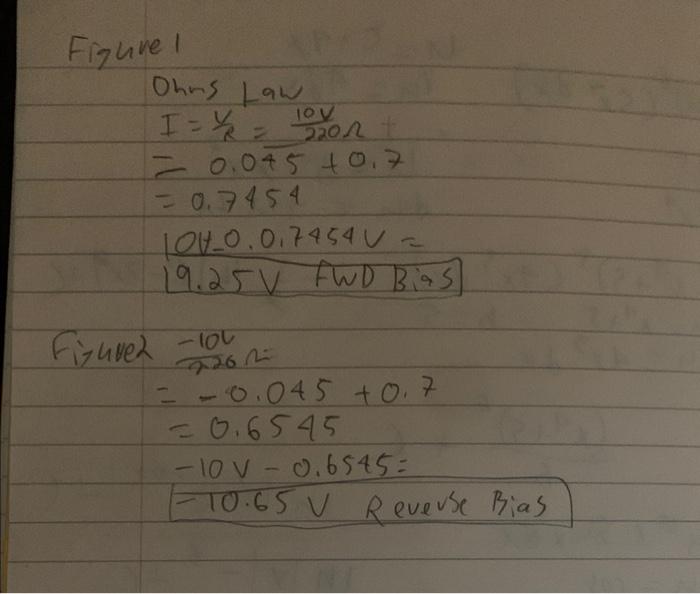 Figure 1
Ohms Law
I = V/R = 10V/220Ω
= 0.045 + 0.7
= 0.7454
10V - 0.0.7454V =
9.25V FWD Bias
Figure2 -10V/220Ω =
= -0.045 + 0.7
= 0.6545
-10V - 0.6545 =
-10.65 V Reverse Bias